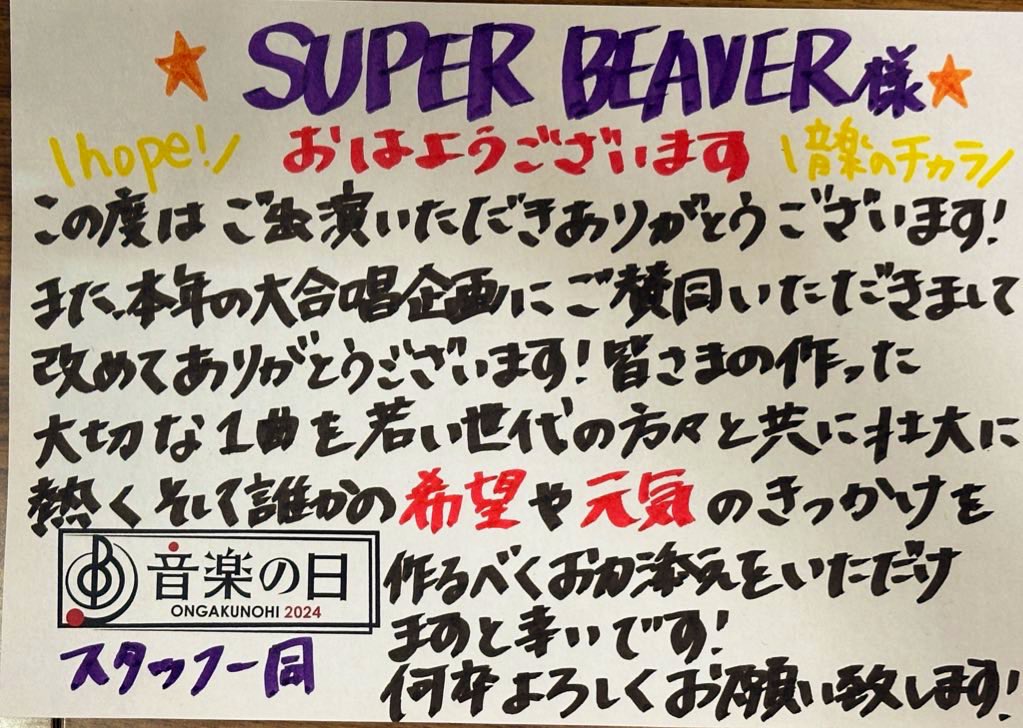 SUPER BEAVER様
\hope!/ おはようございます \音楽のチカラ/
この度はご出演いただきありがとうございます!
また、本年の大合唱企画にご賛同いただきまして
改めてありがとうございます!皆さまの作った
大切な1曲を若い世代の方々と共に壮大に
熱くそして誰かの希望や元気のきっかけを
作るべくお力添えをいただけ
ますと幸いです!
何卒よろしくお願い致します!
音楽の日
ONGAKUNOHI 2024
スタッフ一同